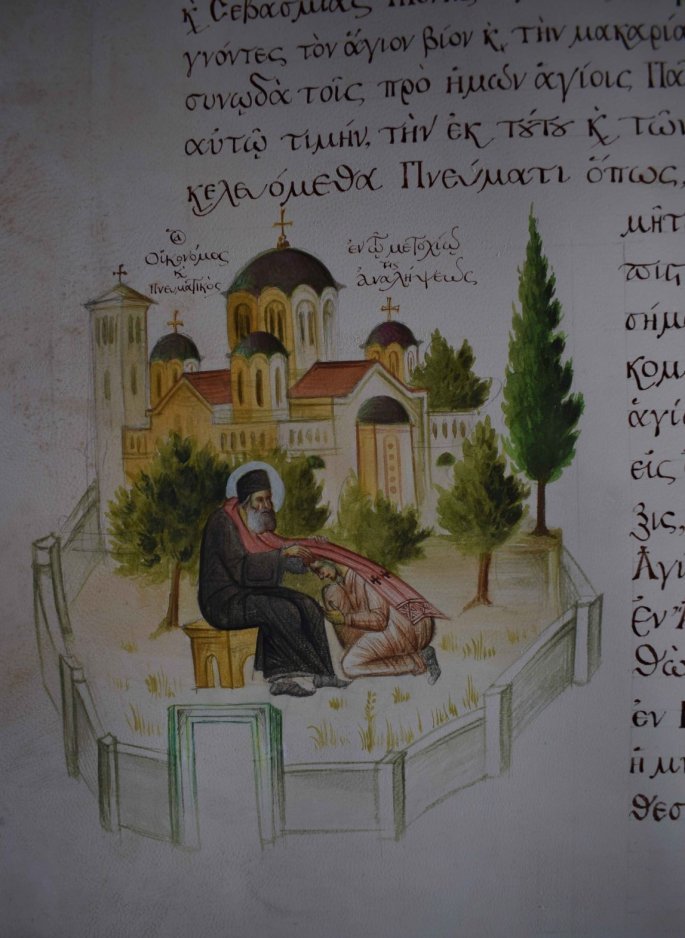 κ̀ Σεβασμίας
γνόντες τὸν ἅγιον βίον κ̀ τὴν μακαρία
συνῳδὰ τοῖς πρὸ ἡμῶν ἁγίοις Πα
αὐτῷ τιμήν, τὴν ἐκ τούτου κ̀ τῶν
κελευόμεθα Πνεύματι ὅπως,
Ὁ
Οἰκονόμος
κ̀
Πνευματικὸς
ἐν τῷ μετοχίῳ
τῆς
ἀναλήψεως
μήτ
πίς
σήμ
κομ
ἁγί
εἰς
ξις,
Ἁγι
ἐν
θῶ
ἐν
ἡ μν
θεσ